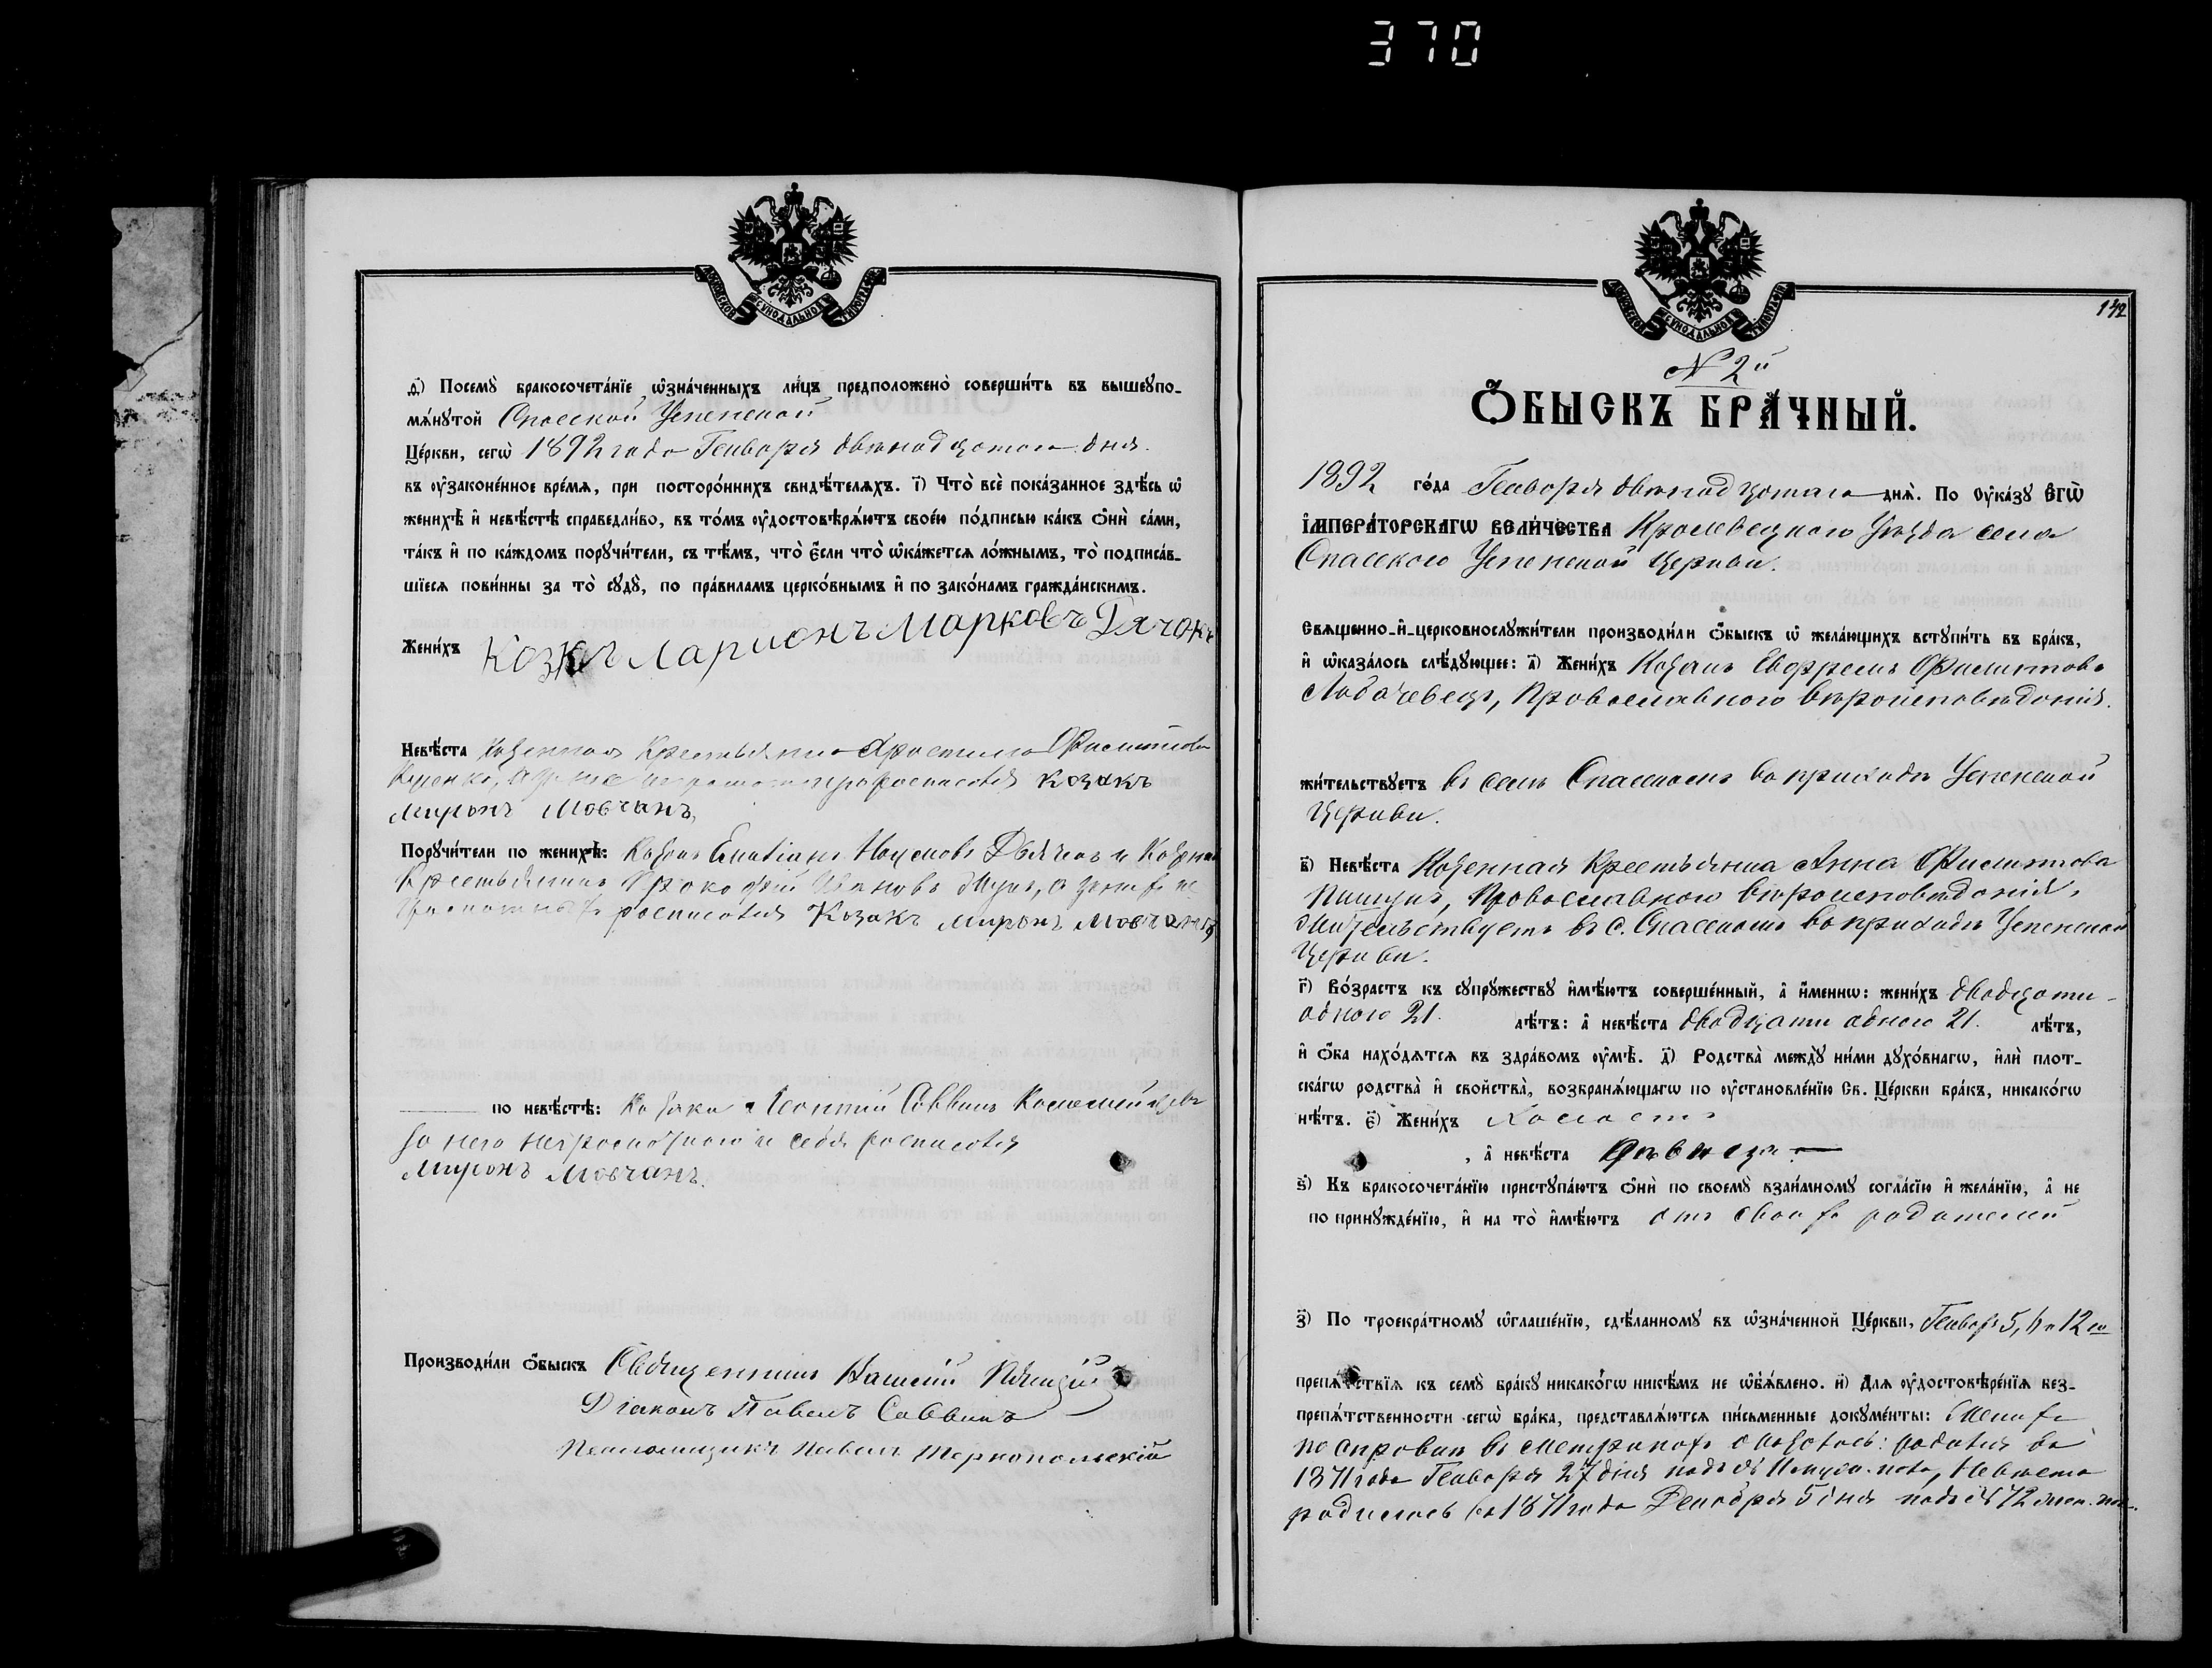 370
МОСКОВСКОЙ СУНОДАЛЬНОЙ ТИПОГРАФІИ
д҃і) Посемꙋ̀ бракосочета́нїе ѡ҆зна́ченныхъ ли́цъ предположено̀ соверши́ть въ вышеꙋпо-
мѧ́нꙋтой Спасской Успенской
Це́ркви, сегѡ̀ 1892 года Генваря двѣнадцатаго дня.
въ ᲂу҆законе́нное вре́мѧ, при посторо́ннихъ свидѣ́телѧхъ. і҃) Что̀ всѐ пока́занное здѣ́сь ѡ҆
женихѣ̀ и҆ невѣ́стѣ справедли́во, въ то́мъ ᲂу҆достовѣрѧ́ютъ свое́ю по́дписью ка́къ ѻ҆нѝ са́ми,
та́къ и҆ по ка́ждомъ порꙋчи́тели, съ тѣ́мъ, что̀ є҆́сли что̀ ѡ҆ка́жетсѧ ло́жнымъ, то̀ подписа́в-
шїесѧ пови́нны за то̀ сꙋдꙋ̀, по пра́виламъ церко́внымъ и҆ по зако́намъ гражда́нскимъ.
Жени́хъ Козакъ Ларионъ Марковъ
Невѣ́ста Козенная Крестьянка Христина Филиппова
неграмотную росписался Козакъ
Миронъ Мовчанъ
Порꙋчи́тели по женихѣ̀: Козакъ Наумовъ и Козенный
Крестьянинъ Прокофій Ивановъ
росписался Козакъ Миронъ Мовчанъ
по невѣ́стѣ: Козаки Леонтій Саввинъ
за него неграмотнаго и себя росписался
Миронъ Мовчанъ.
Производи́ли ѻ҆́быскъ Священникъ
Діаконъ Павелъ Саввинъ
Псаломщикъ Павелъ Тернопольскій
МОСКОВСКОЙ СУНОДАЛЬНОЙ ТИПОГРАФІИ
142
N 2й
Ѻ҆́БЫСКЪ БРА́ЧНЫЙ.
1892 го́да Генваря двѣнадцатаго днѧ̀. По ᲂу҆ка́зꙋ Є҆ГѠ̀
І҆МПЕРА́ТОРСКАГѠ ВЕЛИ́ЧЕСТВА Кролевецкаго Уѣзда села
Спасского Успенской Церкви.
Свѧще́нно-и҆-церковнослꙋжи́тели производи́ли ѻ҆́быскъ ѡ҆ жела́ющихъ встꙋпи́ть въ бра́къ,
и҆ ѡ҆каза́лось слѣ́дꙋющее: а҃) Жени́хъ Козакъ Ефремъ Филипповъ
Лободовецъ, Православнаго вѣроисповѣданія.
жи́тельствꙋетъ въ селѣ Спасскомъ въ приходѣ Успенской
Церкви.
в҃) Невѣ́ста Козенная Крестьянка Анна Филиппова
Православнаго вѣроисповѣданія,
жительствуетъ въ с. Спасскомъ въ приходѣ Успенской
Церкви.
г҃) Во́зрастъ къ сꙋпрꙋ́жествꙋ и҆мѣ́ютъ соверше́нный, а҆ и҆́меннѡ: жени́хъ двадцати
одного 21. лѣ́тъ: а҆ невѣ́ста двадцати одного 21. лѣ́тъ,
и҆ ѻ҆́ба нахо́дѧтсѧ въ здра́вомъ ᲂу҆мѣ̀. д҃) Родства̀ междꙋ̀ ни́ми дꙋхо́внагѡ, и҆лѝ плот-
ска́гѡ родства̀ и҆ сво́йства̀, возбранѧ́ющагѡ по ᲂу҆становле́нїю Св. Це́ркви бра́къ, никако́гѡ
нѣ́тъ. є҃) Жени́хъ Холостъ
, а҆ невѣ́ста дѣвица
ѕ҃) Къ бракосочета́нїю пристꙋпа́ютъ ѻ҆нѝ по своемꙋ̀ взаи́мномꙋ согла́сїю и҆ жела́нїю, а҆ не
по принꙋжде́нїю, и҆ на то̀ и҆мѣ́ютъ отъ своихъ родителей
з҃) По троекра́тномꙋ ѡ҆глаше́нїю, сдѣ́ланномꙋ въ ѡ҆зна́ченной Це́ркви, Генвар. 5, 6 и 12 го
препѧ́тствїѧ къ семꙋ̀ бра́кꙋ никако́гѡ никѣ́мъ не ѡ҆б̾ѧ́влено. и҃) Длѧ ᲂу҆достовѣре́нїѧ без-
препѧ́тственности сегѡ̀ бра́ка, представлѧ́ютсѧ пи́сьменные докꙋме́нты: Женихъ
по справкѣ въ метрикахъ оказалось: родился въ
1871 года Генваря 27 дня подъ невѣста
родилась въ 1871 года Декабря 5 дня подъ № 72